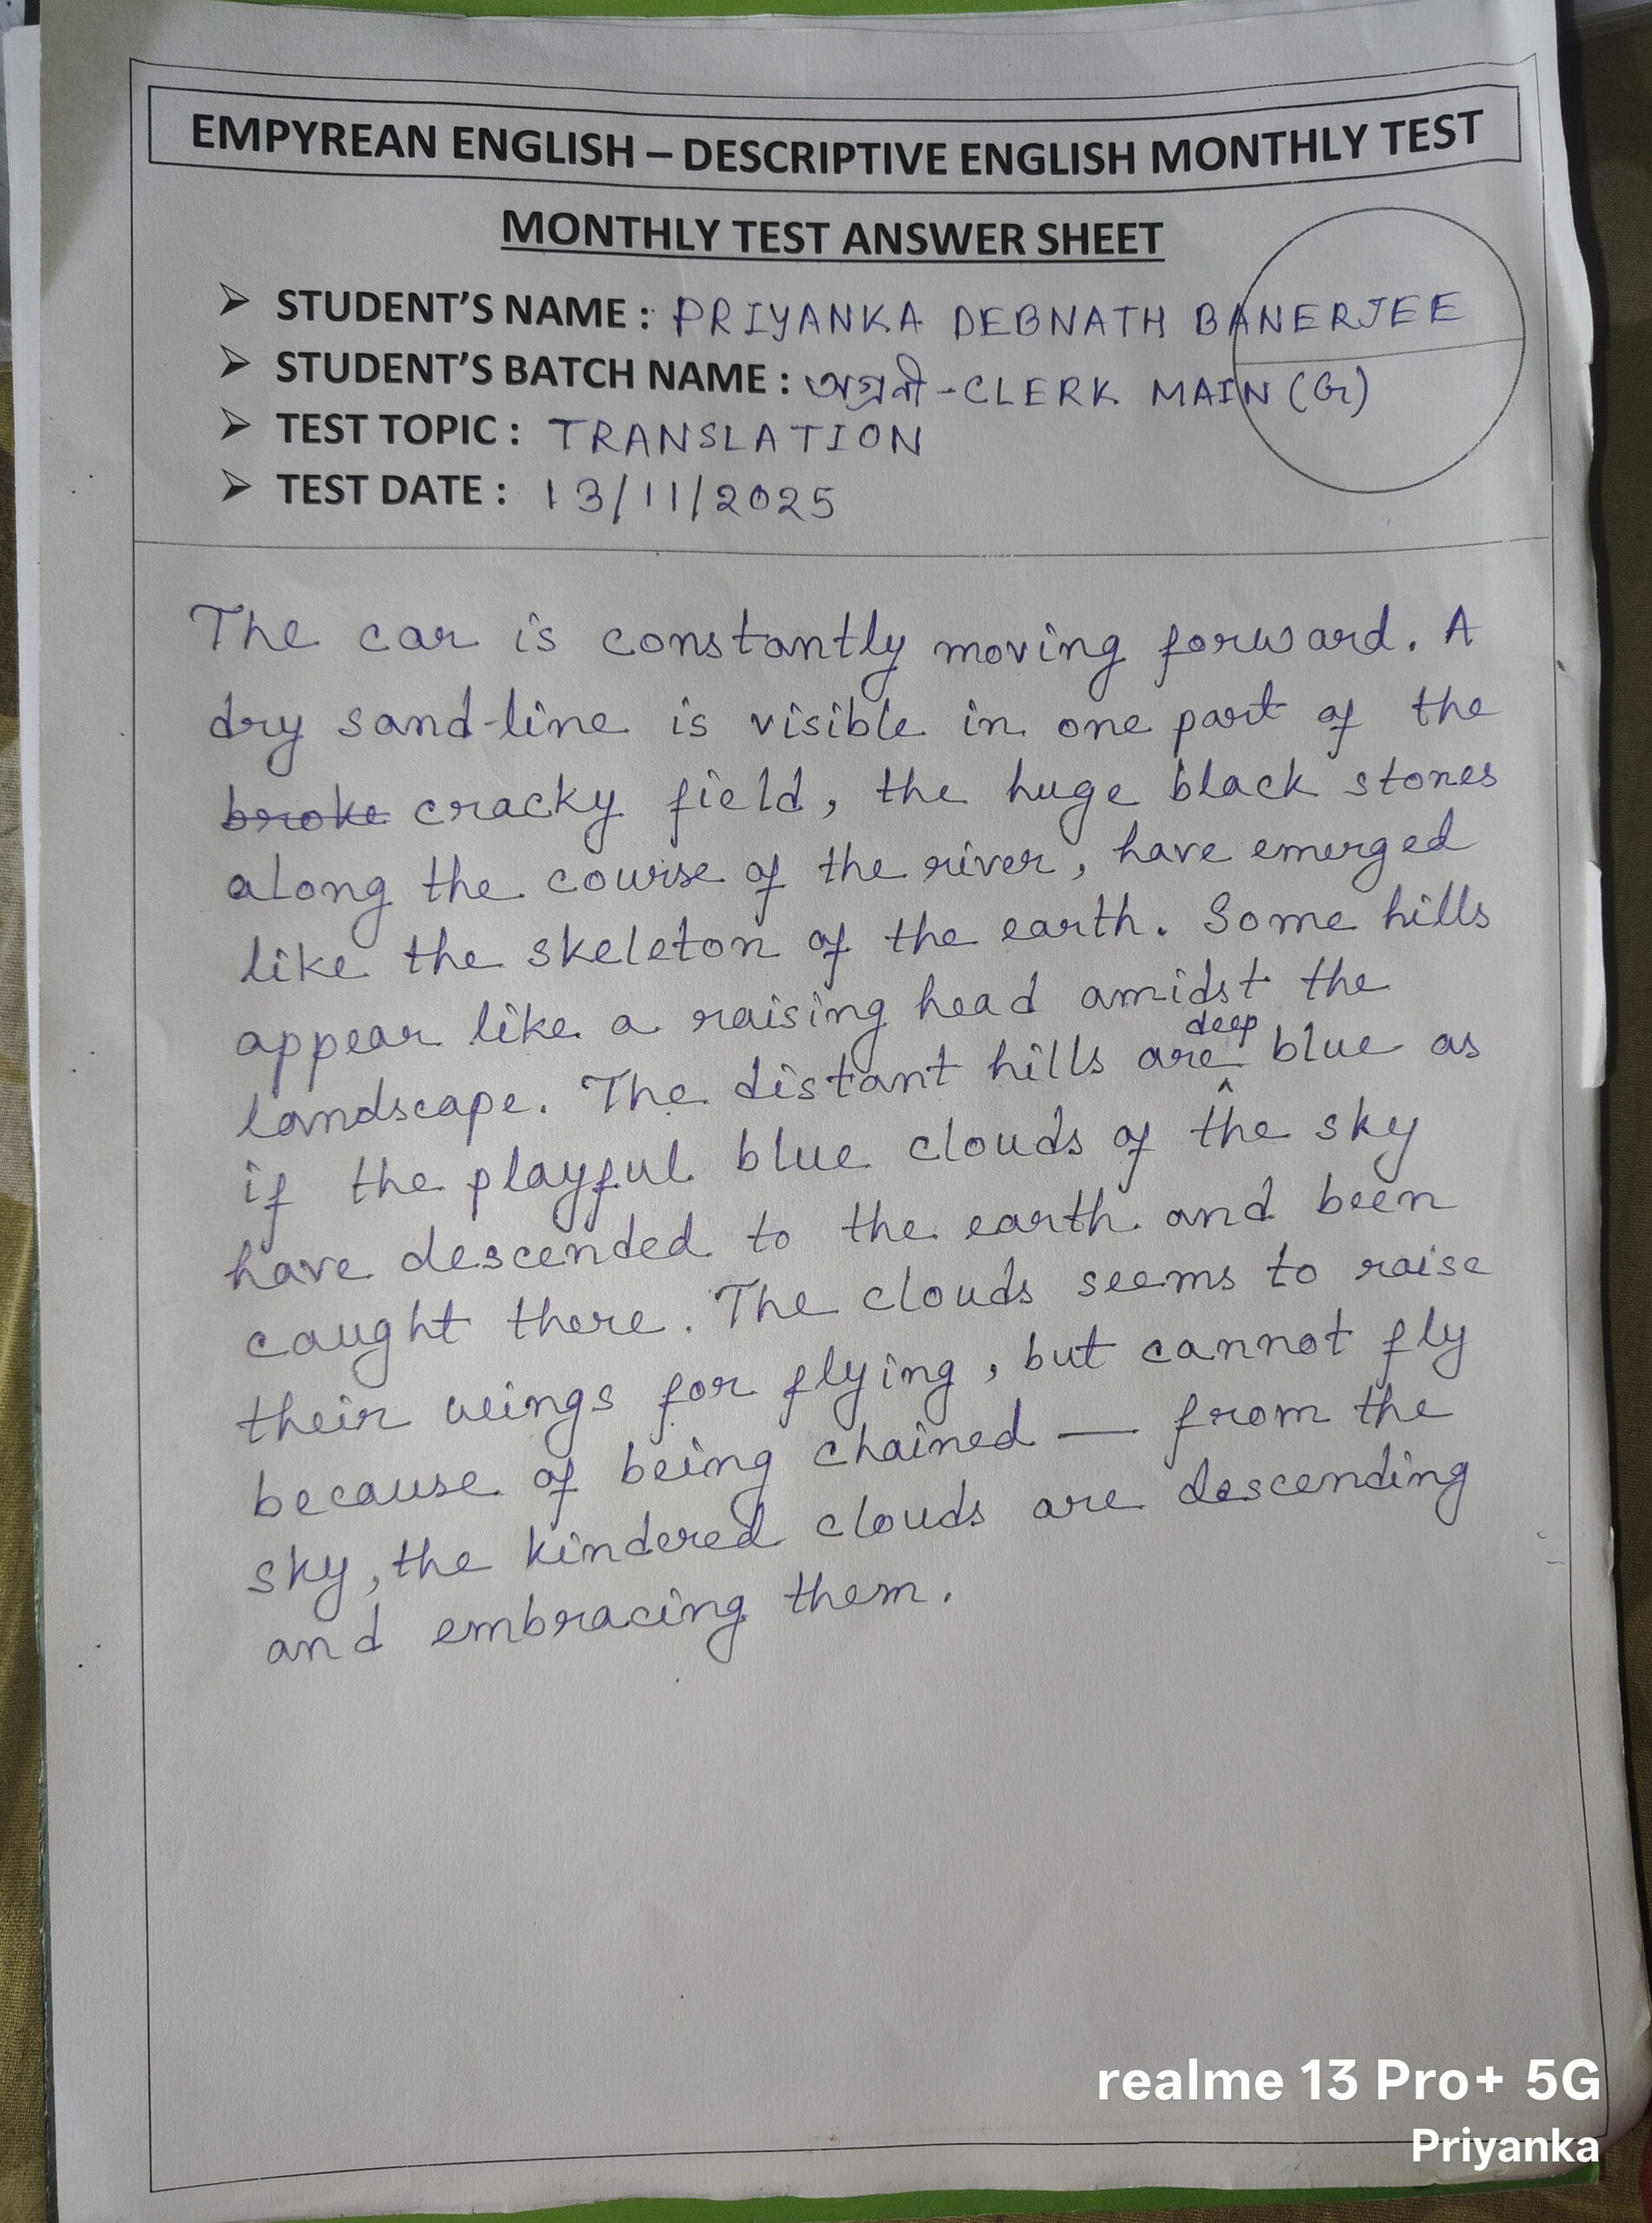 EMPYREAN ENGLISH – DESCRIPTIVE ENGLISH MONTHLY TEST
MONTHLY TEST ANSWER SHEET
➢ STUDENT'S NAME : PRIYANKA DEBNATH BANERJEE
➢ STUDENT'S BATCH NAME : অগ্রনী-CLERK MAIN (G)
➢ TEST TOPIC : TRANSLATION
➢ TEST DATE : 13/11/2025
The car is constantly moving forward. A
dry sand-line is visible in one part of the
broke cracky field, the huge black stones
along the course of the river, have emerged
like the skeleton of the earth. Some hills
appear like a raising head amidst the
landscape. The distant hills are deep blue as
if the playful blue clouds of the sky
have descended to the earth and been
caught there. The clouds seems to raise
their wings for flying, but cannot fly
because of being chained — from the
sky, the kindered clouds are descending
and embracing them.
realme 13 Pro+ 5G
Priyanka